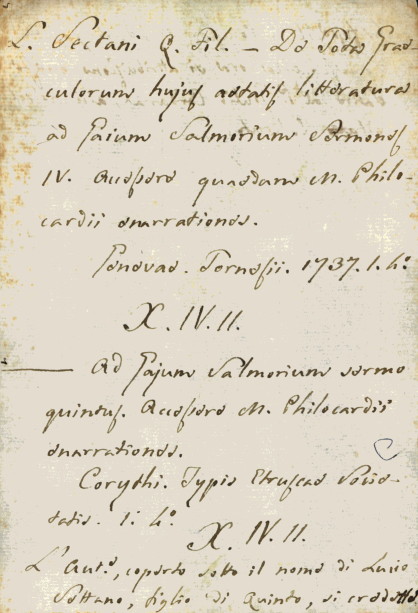 L. Sectani Q. Fil. — De Tota Grae-
culorum hujus aetatis litteratura
ad Gaium Salmorium Sermones
IV. Accessere quaedam M. Philo-
cardii enarrationes.
Genevae. Tornesii. 1737. 1. 4º
X. IV. 11.
— Ad Gajum Salmorium sermo
quintus. Accessere M. Philocardii
enarrationes.
Corythi. Typis Etruscae Socie-
tatis. 1. 4º.
X. IV. 11.
L'Aut.e, coperto sotto il nome di Lucio
Settano, figlio di Quinto, si credette